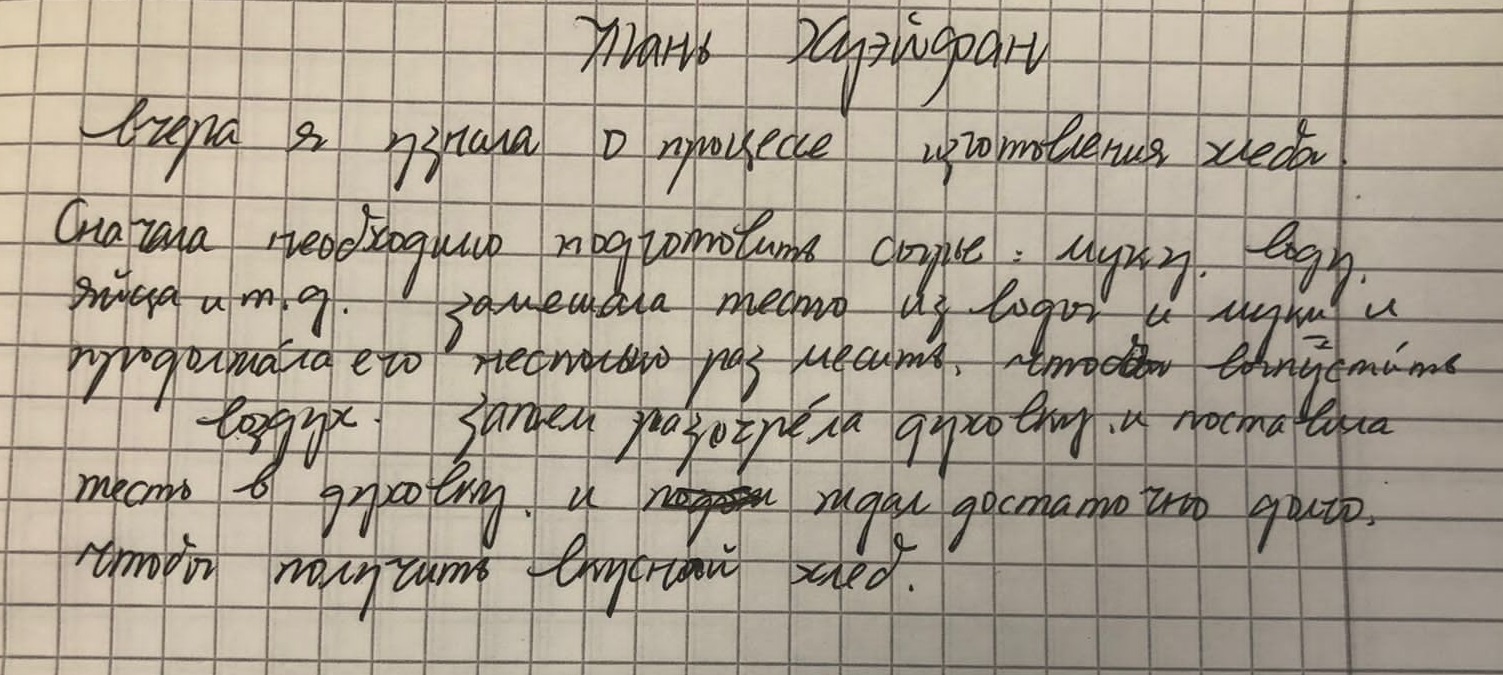 Тань Хуэйфан
Вчера я узнала о процессе изготовления хлеба.
Сначала необходимо подготовить сырье: муку, воду,
яйца и т.д. замешала тесто из воды и муки и
продолжала его несколько раз месить, чтобы выпустить
воздух. затем разогрела духовку, и поставила
тесть в духовку, и ждал достаточно долго,
чтобы получить вкусный хлеб.